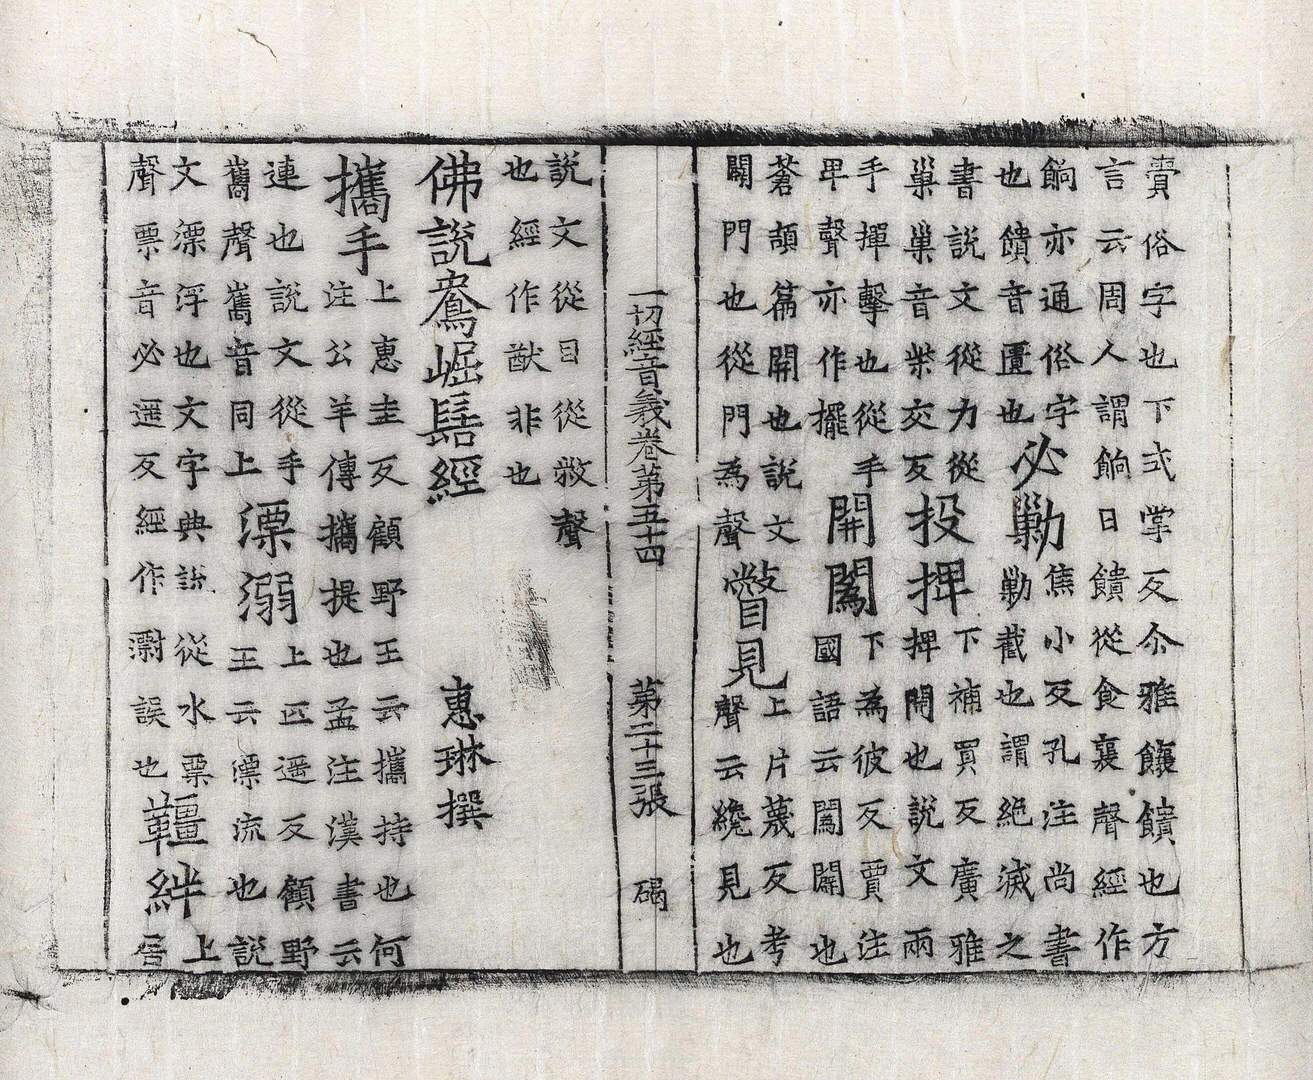 賣俗字也下式掌反尒雅饟饋也方
言云周人謂餉曰饋從食襄聲經作
餉亦通俗字
也饋音匱也
必勦
焦小反孔注尚書
勦截也謂絶滅之
書說文從力從
巢巢音柴交反
投捭
下補買反廣雅
捭開也說文兩
手揮擊也從手
卑聲亦作擺
開闔
下為彼反賈注
國語云闔闢也
蒼頡篇開也說文
闢門也從門為聲
瞥見
上片蔑反考
聲云纔見也
一切經音義卷第五十四　第二十三張　碣
說文從目從敝聲
也經作猷非也
佛說鴦崛髻經　惠琳撰
攜手
上惠圭反顧野王云攜持也何
注公羊傳攜提也孟注漢書云
連也說文從手
巂聲巂音同上
漂溺
上匹遥反顧野
王云漂流也說
文漂浮也文字典說從水票
聲票音必遥反經作㵼誤也
韁絆
上